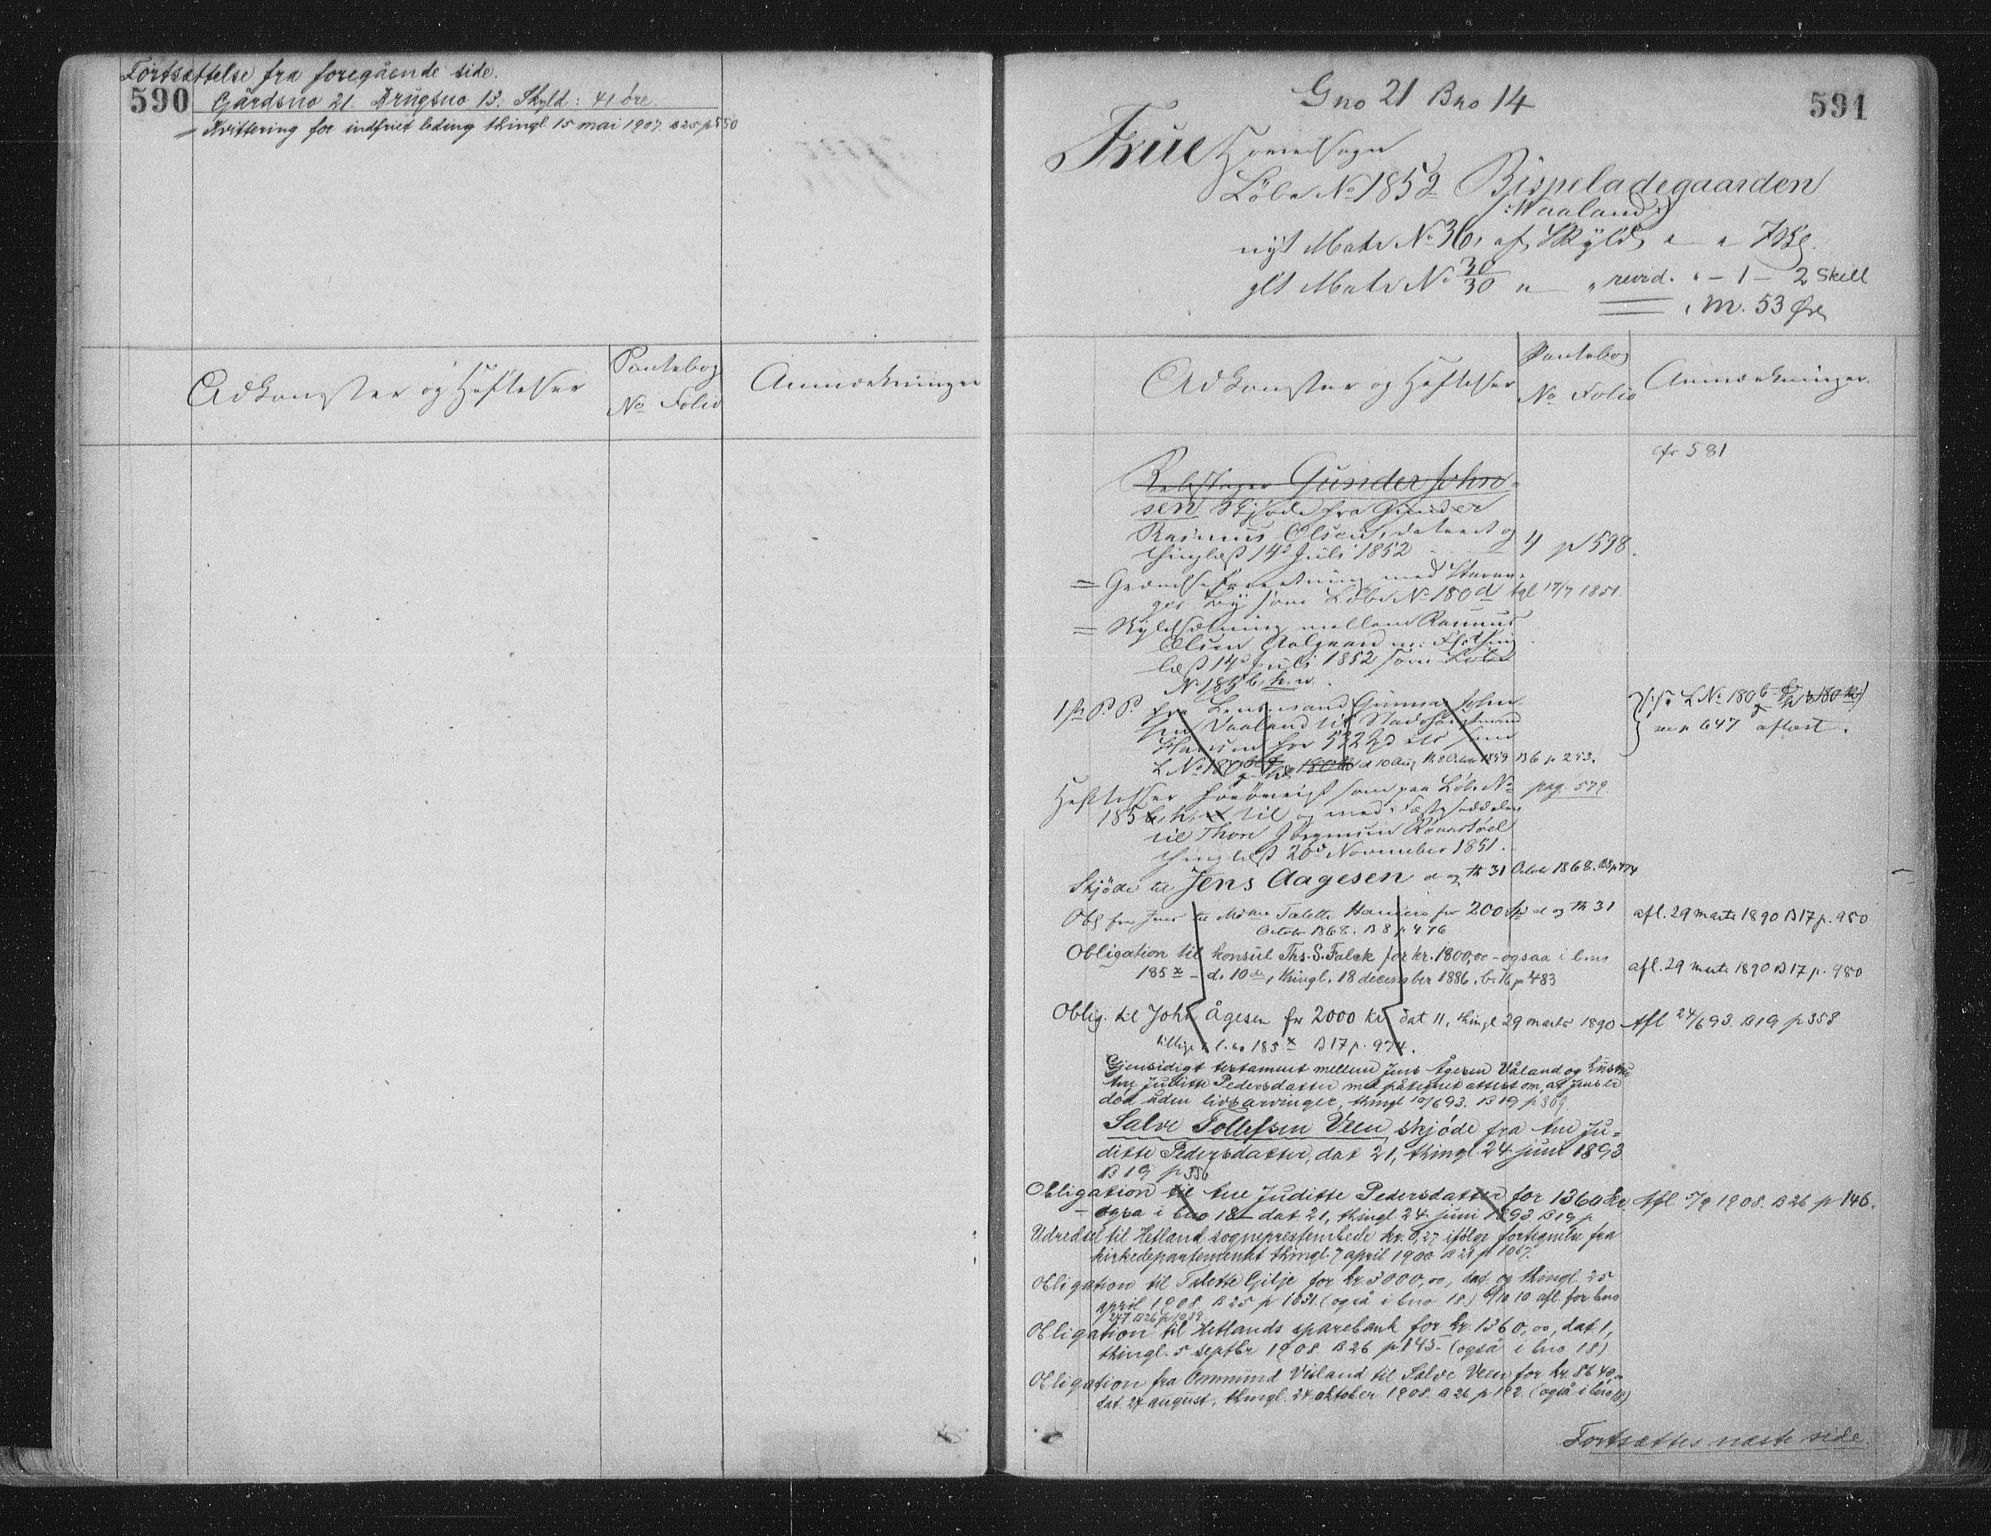 Fortsættelse fra foregående side.
590
Gårdsno 21. Brugsno 13. Skyld: 41 øre.
= Kvittering for indfriet leding thingl 15 mai 1907. B 25 p 550
Adkomster og Heftelser
Pantebog
No Folio
Anmærkninger
Gno 21 Bno 14
591
Frue
Løbe No 185 Bispeladegaarden
(:Waaland:)
nyt Matr No 36, af Skyld
glt Matr No 30/30 " revid. " - 1 - 2 Skill
M. 53 Øre
Adkomster og Heftelser
Pantebog
No Folio
Anmærkninger.
cfr 581
Rebslager Gunder John-
sen Skjøde fra Gunder
Rasmus Olsen, dateret og
thinglæst 14de Juli 1852
4 p 598.
= Grændseforretning med Stavan-
ger By som Løbe No 180 d tgl 17/7 1851.
= Skyldsætning mellem Rasmus
Olsen Aalgaard m. Fl. thing
læst 14de Juli 1852 som Løbe
No 185 b, h.
1ste P. P. fra Gunnar John
sen Vaaland til Stadshauptmand
Hansen for 532
L No 180 d 10 Aug th 8 Octbr 1859 B 6 p 253.
L No 180
p 647 aflæst.
Heftelser forøvrigt som paa Løbe No pag. 579
185 b, h, til og med Fæsteseddelen
til Thore
thinglæst 20de November 1851.
Skjøde til Jens Aagesen d og th 31 Octobr 1868. B 8 p 474
Obl fra Jens til Talette Hansen for 200 Sp d og th 31
October 1868. B 8 p 476
afl. 29 marts 1890 B 17 p. 980
Obligation til konsul Ths. S. Falck for kr. 1800,00 - ogsaa i b.no
185 x - d. 10 de, thingl. 18 december 1886. b. 16 p 483
afl. 29 marts 1890 B 17 p. 980
Oblig. til John Ågesen for 2000 kr. dat 11, thingl 29 marts 1890
tillige i l. no 185 x B 17 p. 974.
Afl 24/6 93. B 19 p 358
Gjensidigt testament mellem Jens Ågesen Våland og hustru
Ane Juditte Pedersdatter med påtegnet attest om, at Jens er
død uden livsarvinger, thingl 10/6 93. B 19 p 369
Salve Tollefsen Veen skjøde fra Ane Ju-
ditte Pedersdatter, dat 21, thingl 24 juni 1893
B 19 p 356
Obligation til Ane Juditte Pedersdatter for 1360 kr
også i bno 18 - dat. 21, thingl 24 juni 1893 B 19 p
Afl 5/9 1908. B 26 p 146.
Udredsel til Hetland sogneprestembede kr. 0,27 ifølge fortegnelse fra
kirkedepartementet thingl. 7 april 1900. B 21 p 1067.
Obligation til Talette Gilje for kr. 3000,00, dat og thingl 25
april 1908. B 25 p 1031. (også i bno 18.) 10 afl. for bno
247 B 26 p 1039.
Obligation til Hetlands sparebank for kr. 1360,00, dat 1,
thingl. 5 septbr 1908. B 26 p 145 - (også i bno 18)
Obligation fra Ommund Visland til Salve Veen for kr. 8640,-
dat. 24 august, thingl. 24 oktober 1908. B 26 p 192. (også i bno 18)
Fortsættes næste side